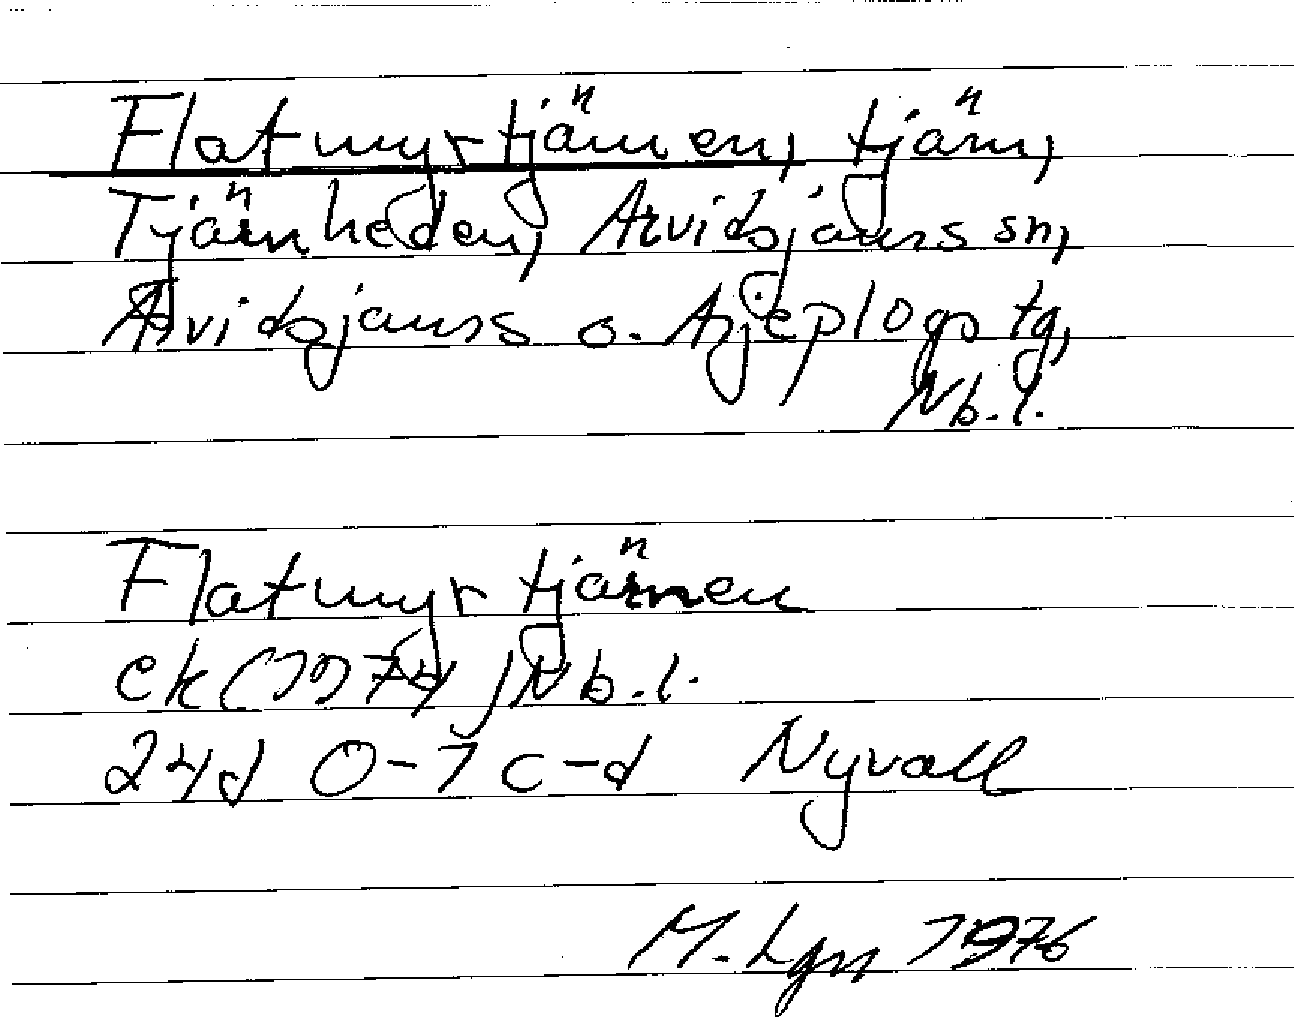 Flatmyrtjärnen, tjärn,
Tjärnheden, Arvidsjaurs sn,
Arvidsjaurs o. Arjeplogs tg,
Nb.l.
Flatmyrtjärnen
ek (1974) Nb.l.
24d 0-1 c-d Nyvall
M. Lgn 1976